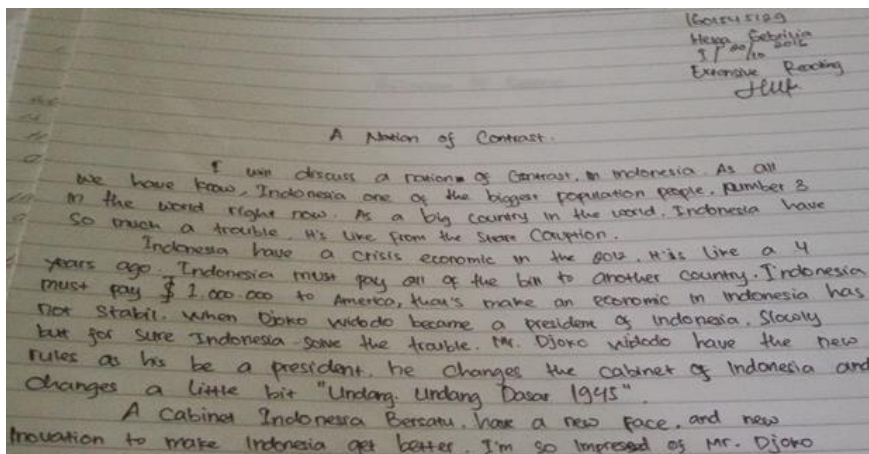 1601545129
Hessa Febrilia
I / 20/10 2016
Extensive Reading
A Nation of Contrast.
I win discuss a nation of Contrast. in Indonesia. As all
we have know, Indonesia one of the biggest population people. number 3
in the world right now. As a big country in the world. Indonesia have
so much a trouble. It's like from the State Coruption.
Indonesia have a crisis economic in the 2012. It is like a 4
years ago. Indonesia must pay all of the bill to another country. Indonesia
must pay $ 1.000.000 to America, that's make an economic in Indonesia has
not stabil. When Djoko Widodo became a president of Indonesia. Slowly
but for sure Indonesia solve the trouble. Mr. Djoko widodo have the new
rules as his be a president. he changes the cabinet of Indonesia and
changes a little bit "Undang. Undang Dasar 1945".
A Cabinet Indonesia Bersatu. have a new face. and new
Inovation to make Indonesia get better. I'm so Impresed of Mr. Djoko